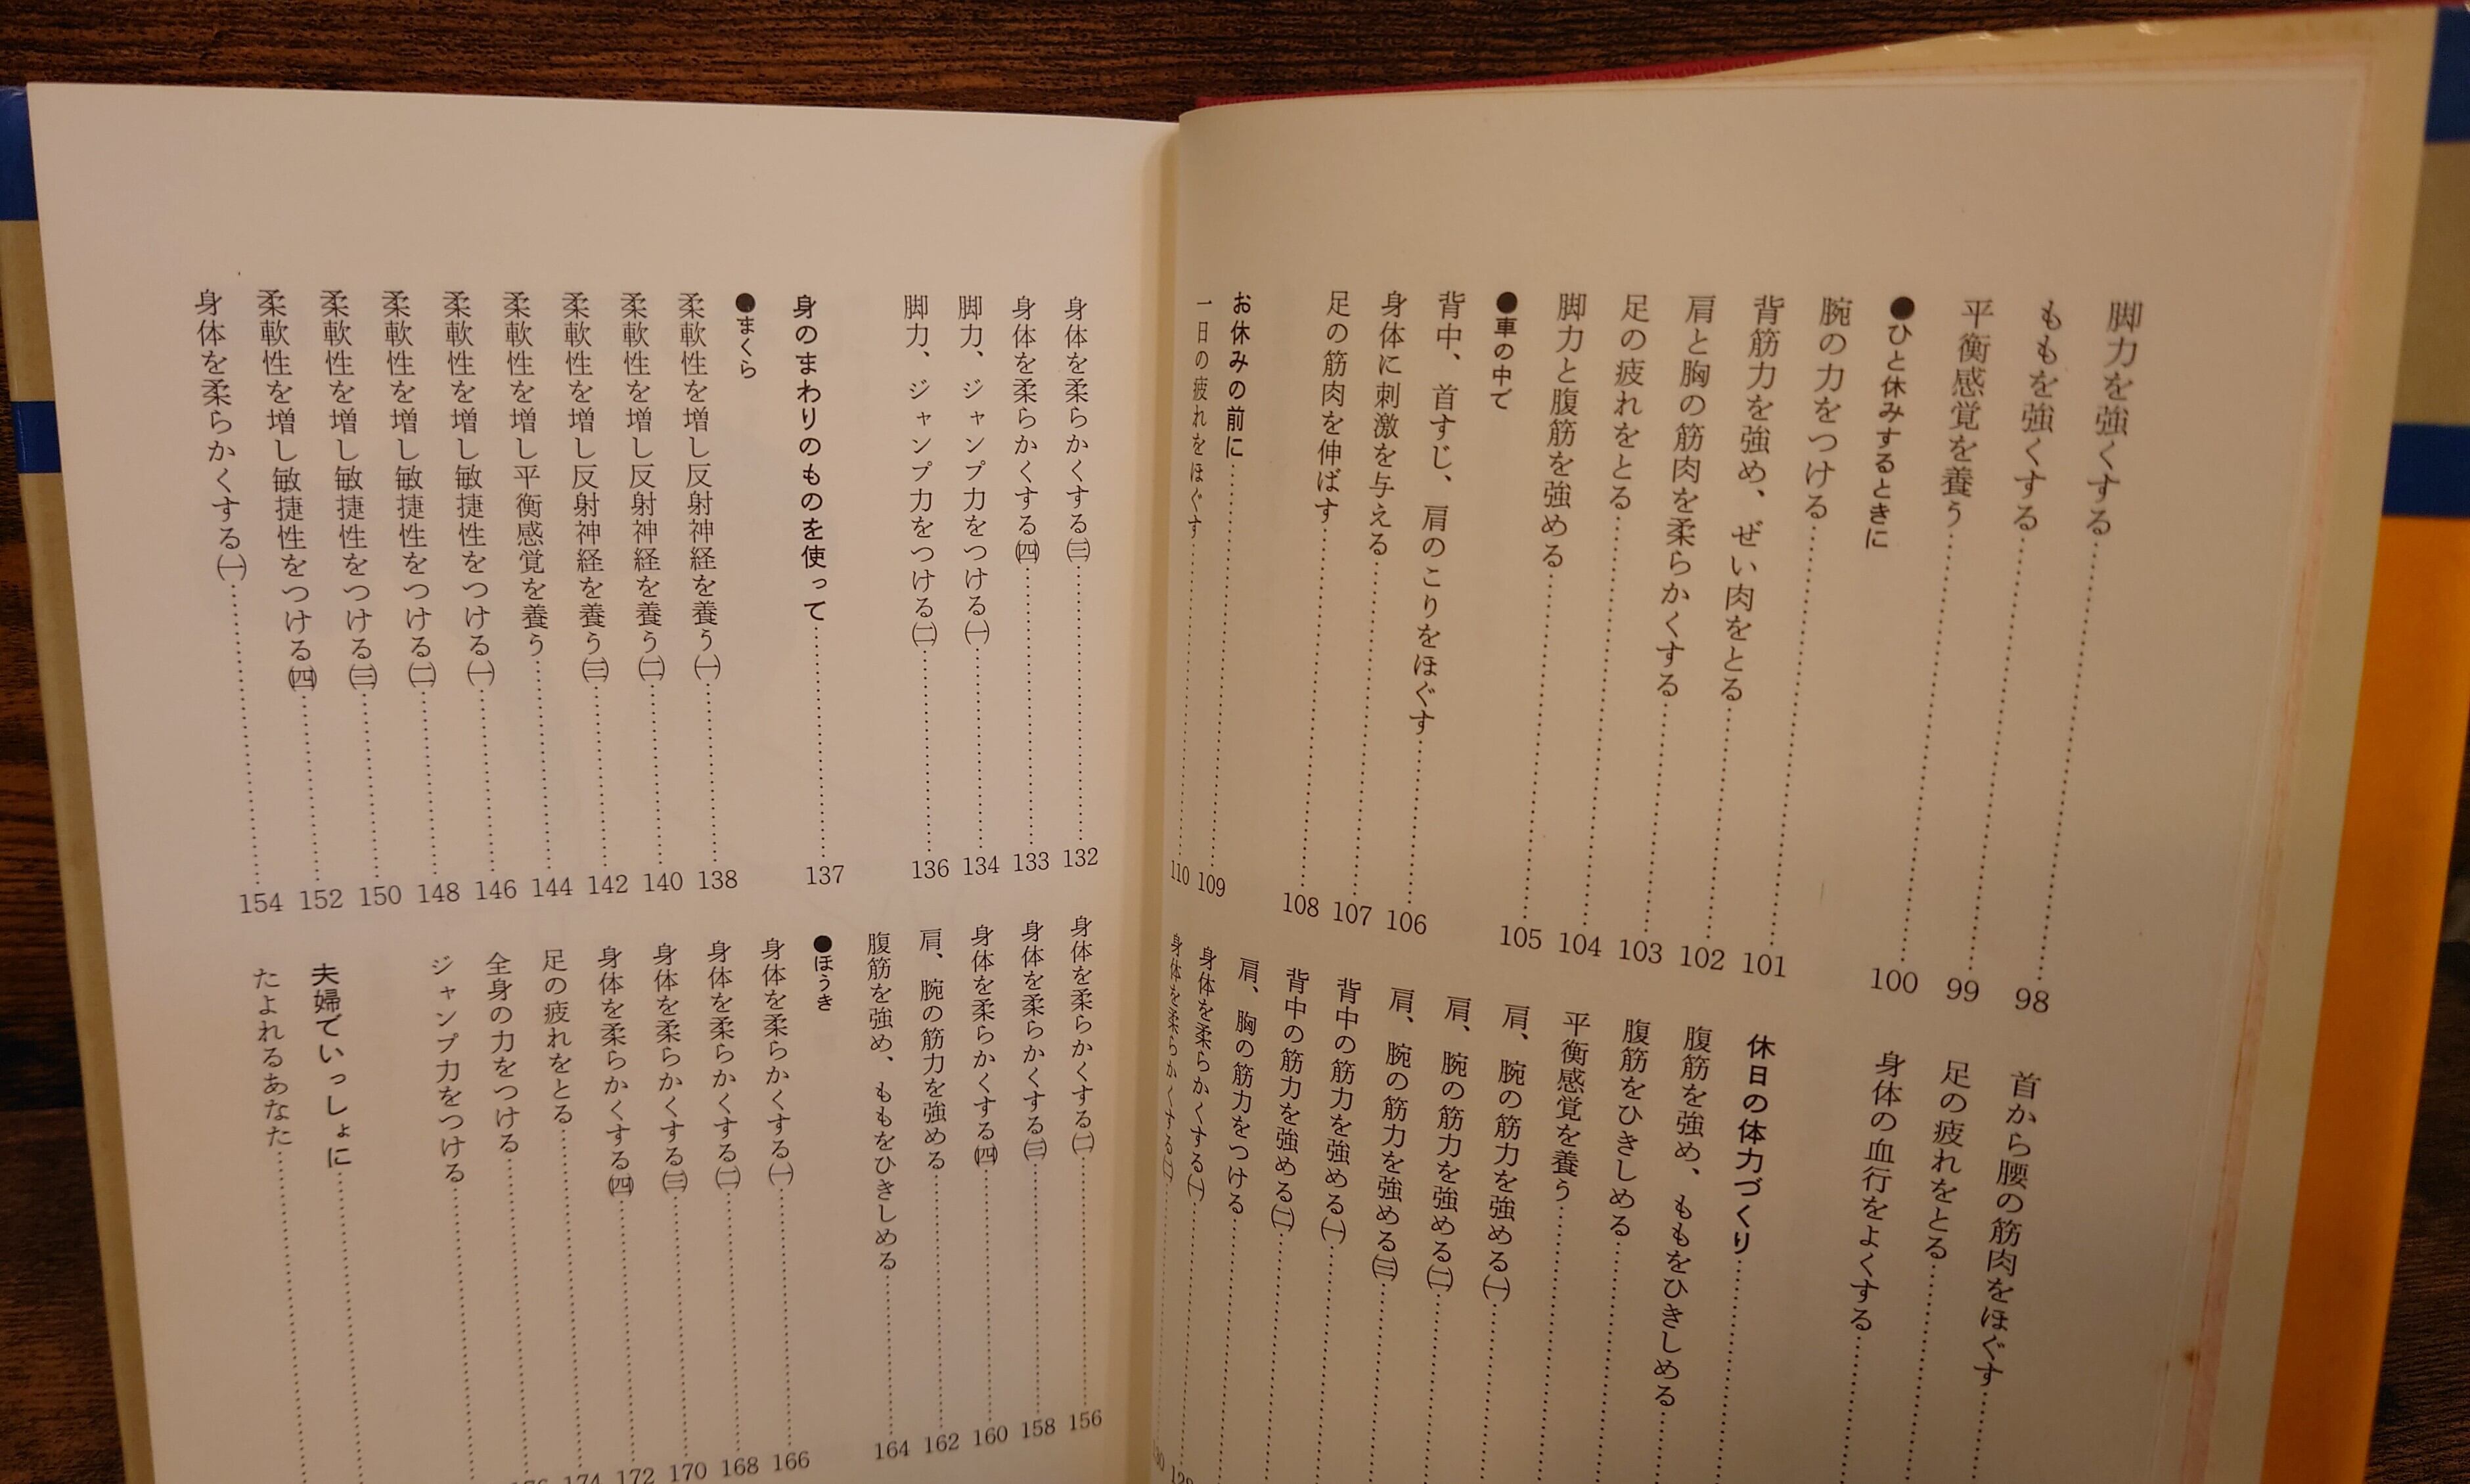 脚力を強くする……98
ももを強くする……99
平衡感覚を養う……100
●ひと休みするときに
腕の力をつける……101
背筋力を強め、ぜい肉をとる……102
肩と胸の筋肉を柔らかくする……103
足の疲れをとる……104
脚力と腹筋を強める……105
●車の中で
背中、首すじ、肩のこりをほぐす……106
身体に刺激を与える……107
足の筋肉を伸ばす……108
お休みの前に……109
一日の疲れをほぐす……110
首から腰の筋肉をほぐす……
足の疲れをとる……
身体の血行をよくする……
休日の体力づくり……
腹筋を強め、ももをひきしめる……
腹筋をひきしめる……
平衡感覚を養う……
肩、腕の筋力を強める㈠……
肩、腕の筋力を強める㈡……
肩、腕の筋力を強める㈢……
背中の筋力を強める㈠……
背中の筋力を強める㈡……
肩、胸の筋力をつける……
身体を柔らかくする㈠……
身体を柔らかくする……
身体を柔らかくする㈢……132
身体を柔らかくする㈣……133
脚力、ジャンプ力をつける㈠……134
脚力、ジャンプ力をつける㈡……136
身のまわりのものを使って……137
●まくら
柔軟性を増し反射神経を養う㈠……138
柔軟性を増し反射神経を養う㈡……140
柔軟性を増し反射神経を養う㈢……142
柔軟性を増し平衡感覚を養う……144
柔軟性を増し敏捷性をつける㈠……146
柔軟性を増し敏捷性をつける㈡……148
柔軟性を増し敏捷性をつける㈢……150
柔軟性を増し敏捷性をつける㈣……152
身体を柔らかくする㈠……154
身体を柔らかくする㈡……156
身体を柔らかくする㈢……158
身体を柔らかくする㈣……160
肩、腕の筋力を強める……162
腹筋を強め、ももをひきしめる……164
●ほうき
身体を柔らかくする㈠……166
身体を柔らかくする㈡……168
身体を柔らかくする㈢……170
身体を柔らかくする㈣……172
足の疲れをとる……174
全身の力をつける……176
ジャンプ力をつける……
夫婦でいっしょに……
たよれるあなた……